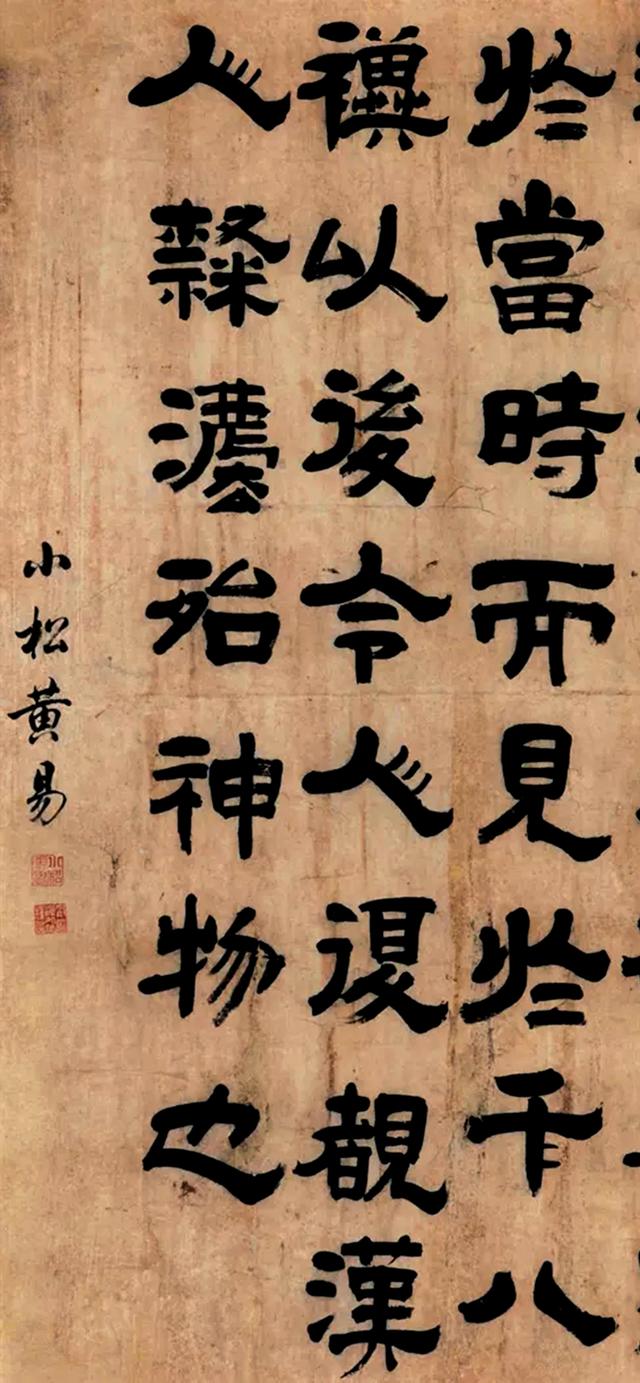 於當時而見於千八
禩以後令人復覩漢
人隸灋殆神物也
小松黃易